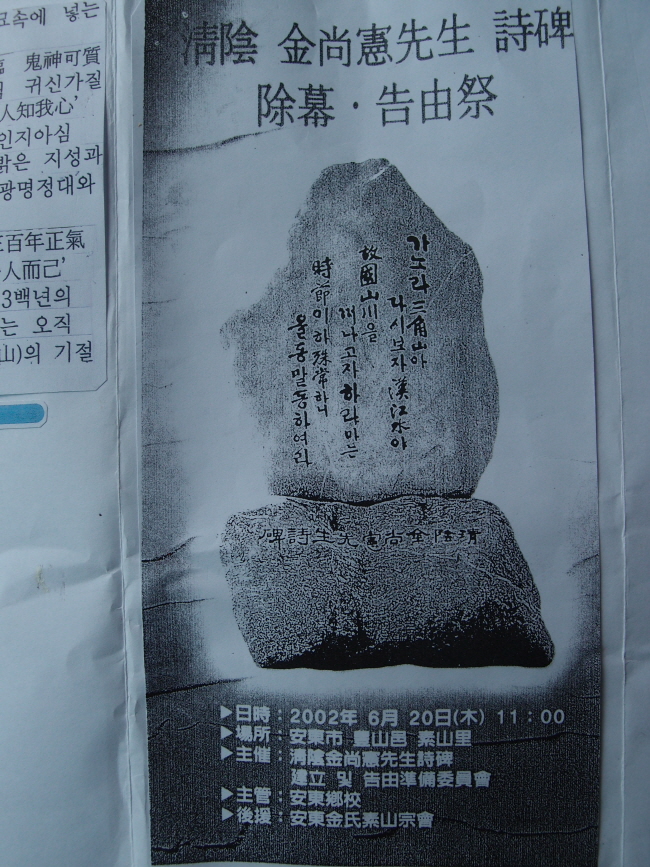 넣는
鬼神可質
귀신가질
人知我心’
인지아심
밝은 지성과
광명정대와
三百年正氣
人而己’
3백년의
는 오직
山)의 기절
淸陰 金尙憲先生 詩碑
除幕·告由祭
가노라 三角山아
다시보자 漢江水야
故國山川을
떠나고자 하랴마는
時節이 하 殊常하니
올동말동하여라
淸陰金尙憲先生詩碑
▶日時 : 2002年 6月 20日(木) 11 : 00
▶場所 : 安東市 豊山邑 素山里
▶主催 : 淸陰金尙憲先生詩碑
建立 및 告由準備委員會
▶主管 : 安東鄕校
▶後援 : 安東金氏素山宗會